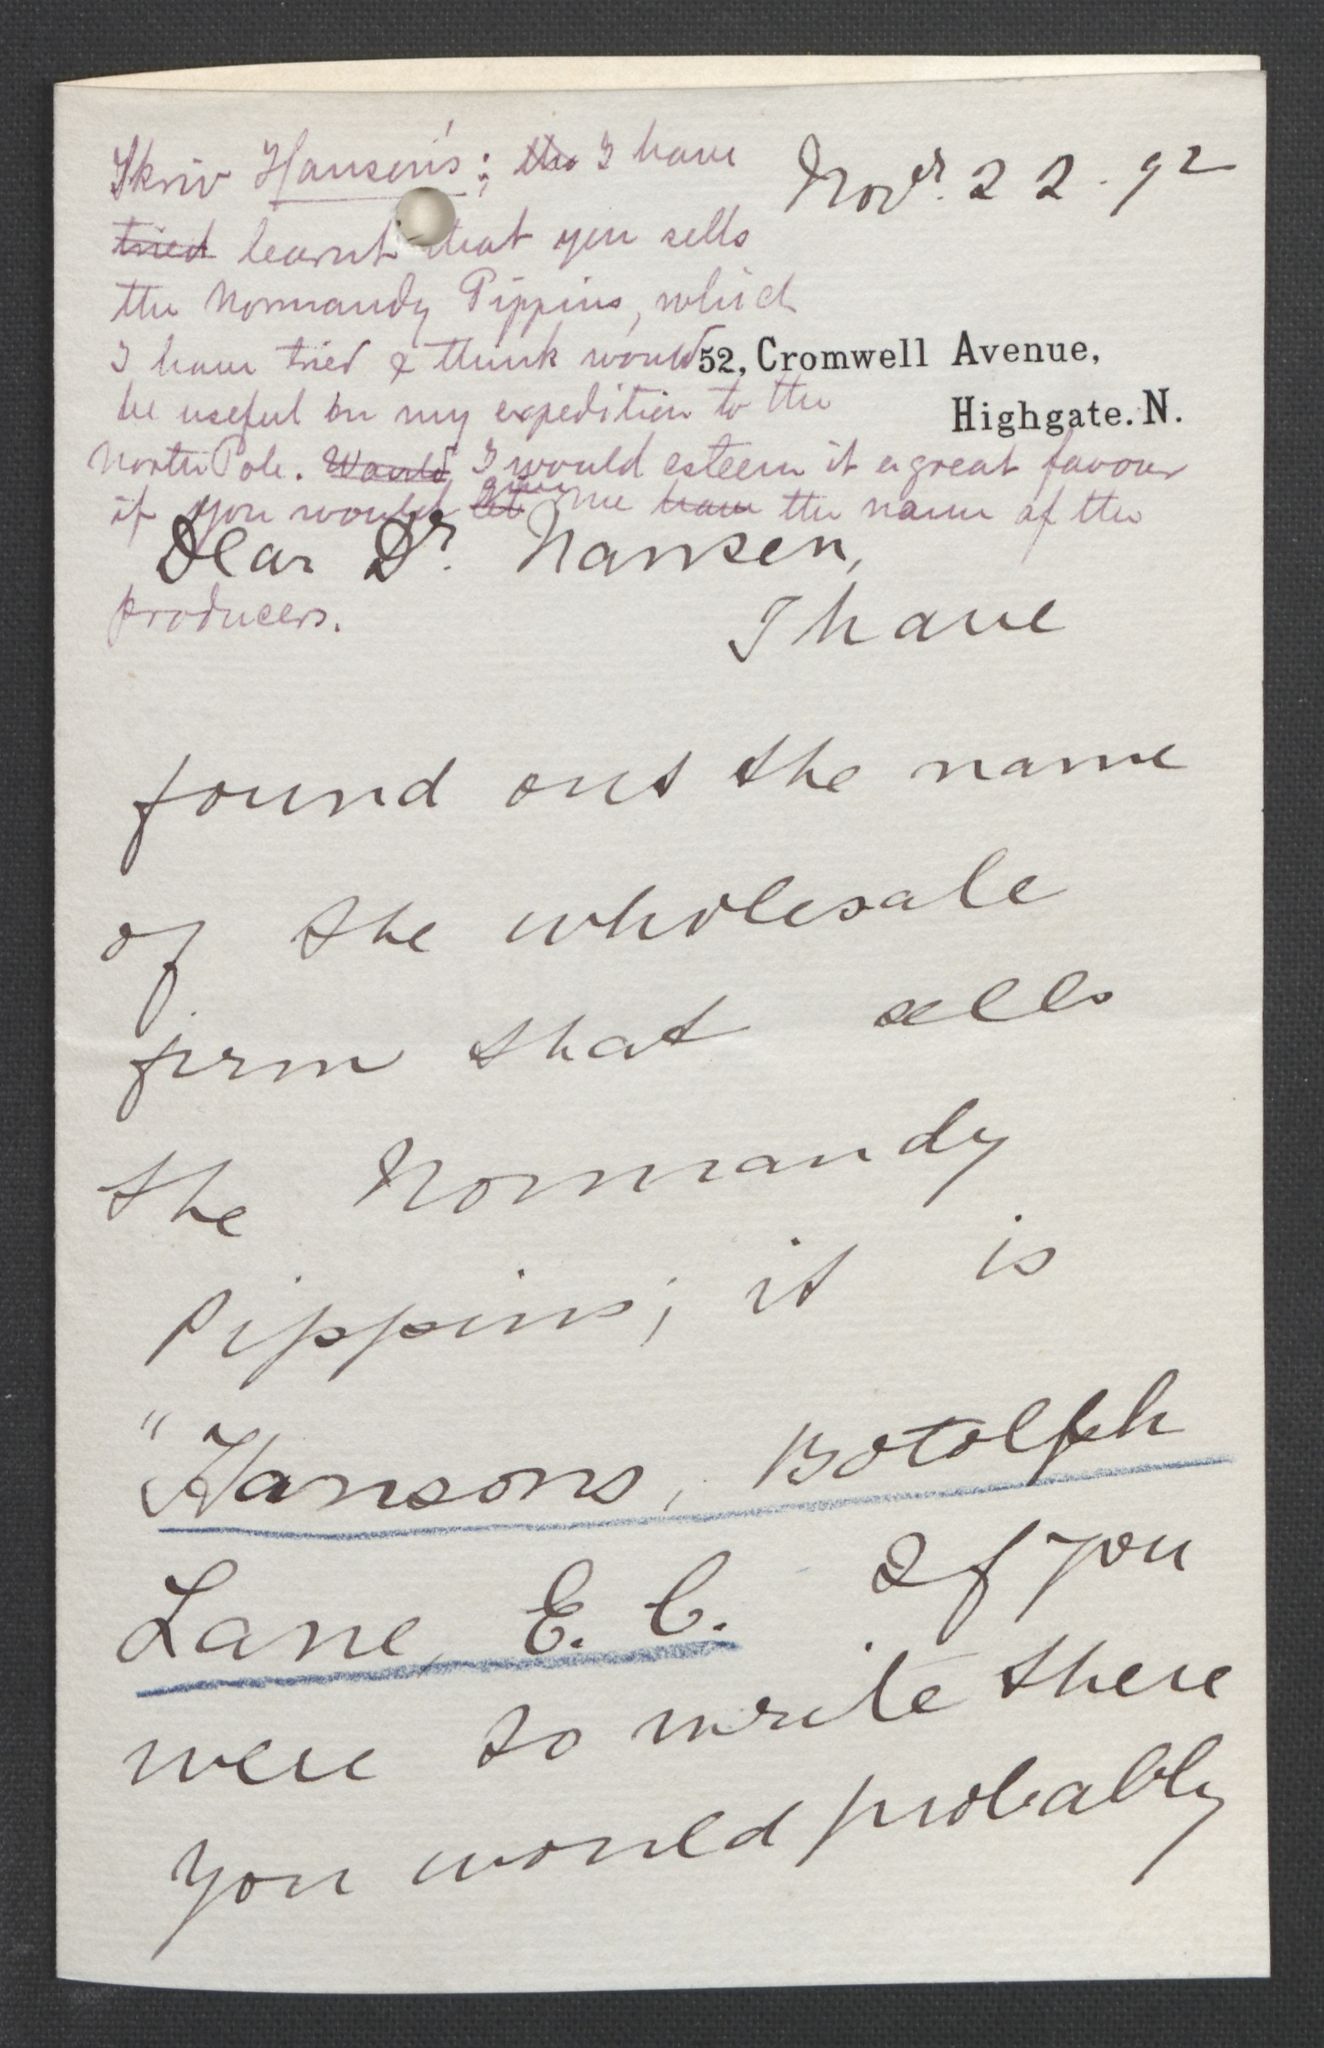 Skriv Hanson's; tho I have
tried learnt that you sells
the Normandy Pippins, which
I have tried & think would
be useful on my expedition to the
North Pole. Would I would esteem it a great favour
if you would let give me have the name of the
producers.
Novr. 22. 92
52, Cromwell Avenue,
Highgate. N.
Dear Dr. Nansen,
I have
found out the name
of the wholesale
firm that sells
the Normandy
Pippins; it is
"Hansons, Botolph
Lane, E. C. If you
were to write there
you would probably